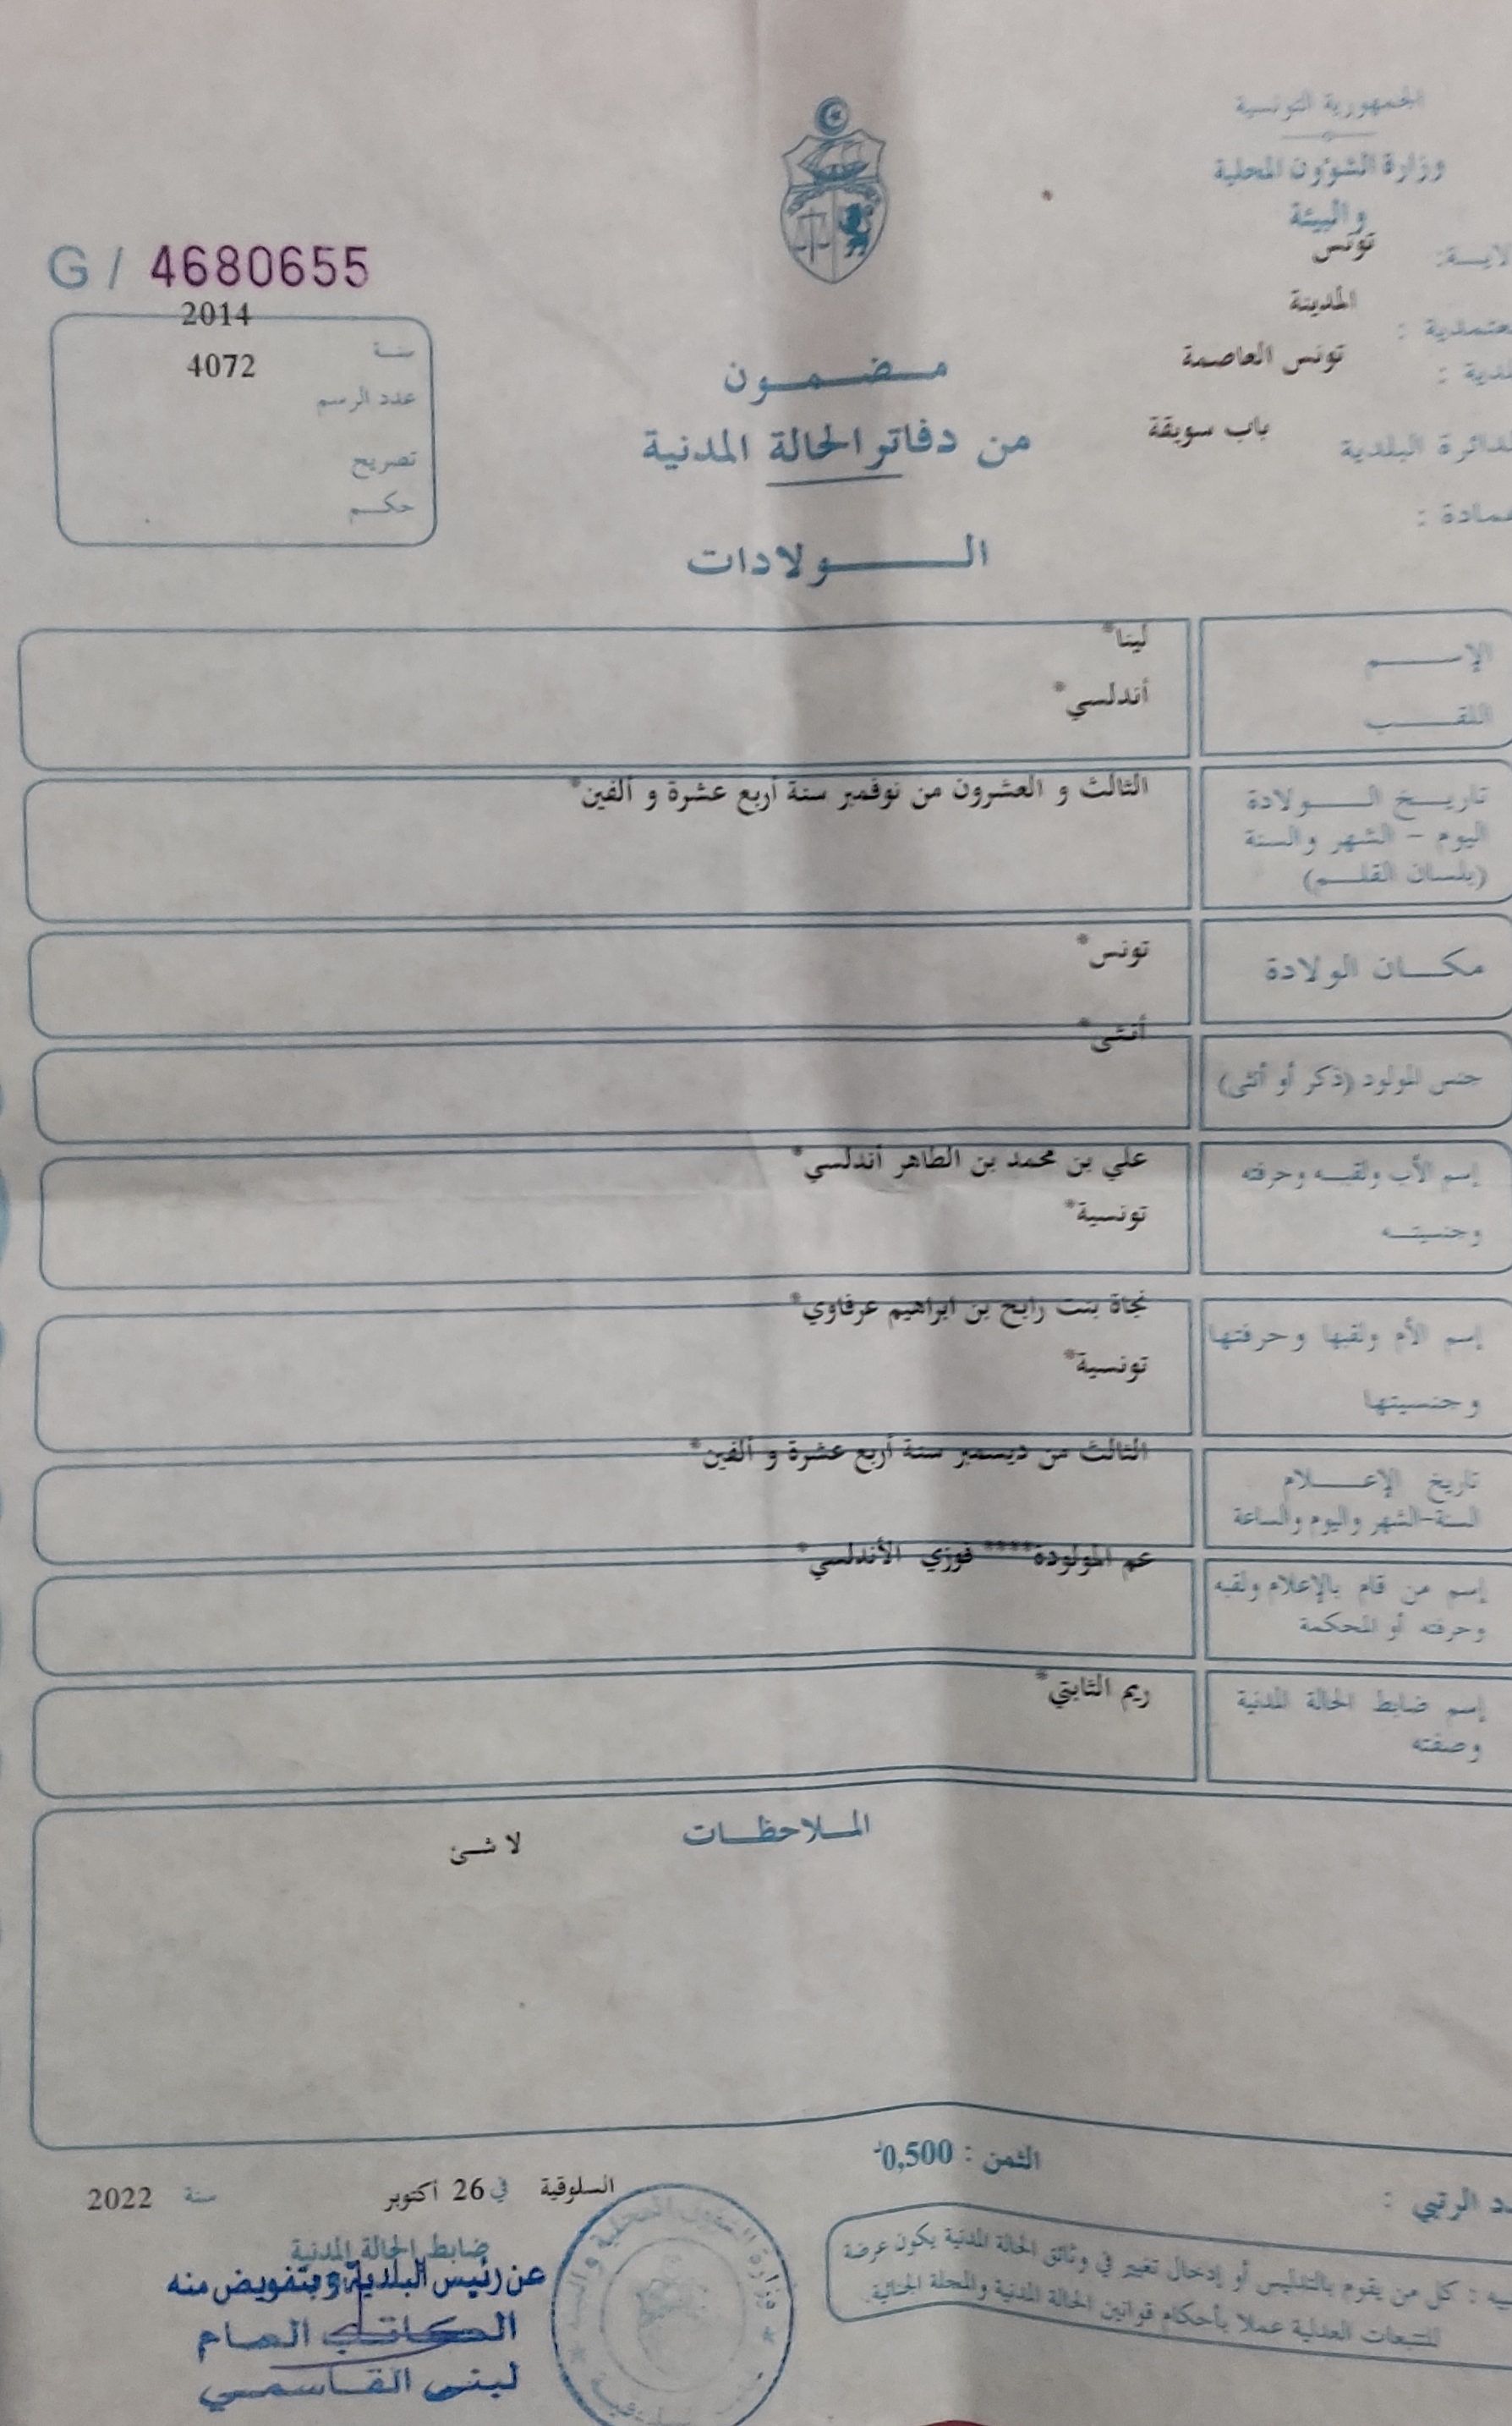 الجمهورية التونسية
وزارة الشؤون المحلية
والبيئة
تونس
المدينة
تونس العاصمة
الدائرة البلدية باب سويقة
G / 4680655
2014
سنة
4072
عدد الرسم
تصريح
حكم
مضمون
من دفاتر الحالة المدنية
الولادات
الإسم لينا*
اللقب أندلسي*
تاريخ الولادة الثالث و العشرون من نوفمبر سنة أربع عشرة و ألفين*
اليوم - الشهر والسنة
(بلسان القلم)
مكان الولادة تونس*
أنثى*
جنس المولود (ذكر أو أنثى)
إسم الأب ولقبه وحرفته علي بن محمد بن الطاهر أندلسي*
وجنسيته تونسية*
نجاة بنت رابح بن ابراهيم عرفاوي*
إسم الأم ولقبها وحرفتها
تونسية*
وجنسيتها
الثالث من ديسمبر سنة أربع عشرة و ألفين*
تاريخ الإعلام
السنة-الشهر واليوم والساعة
عم المولودة**** فوزي الأندلسي*
إسم من قام بالإعلام ولقبه
وحرفته أو المحكمة
إسم ضابط الحالة المدنية ريم الثابتي*
وصفته
الملاحظات
لا شئ
الثمن : 0,500د
السلوقية في 26 أكتوبر سنة 2022
ضابط الحالة المدنية
عن رئيس البلدية وبتفويض منه
الكاتب العام
لبنى القاسمي
كل من يقوم بالتدليس أو إدخال تغيير في وثائق الحالة المدنية يكون عرضة
للتتبعات العدلية عملا بأحكام قوانين الحالة المدنية والمجلة الجنائية.